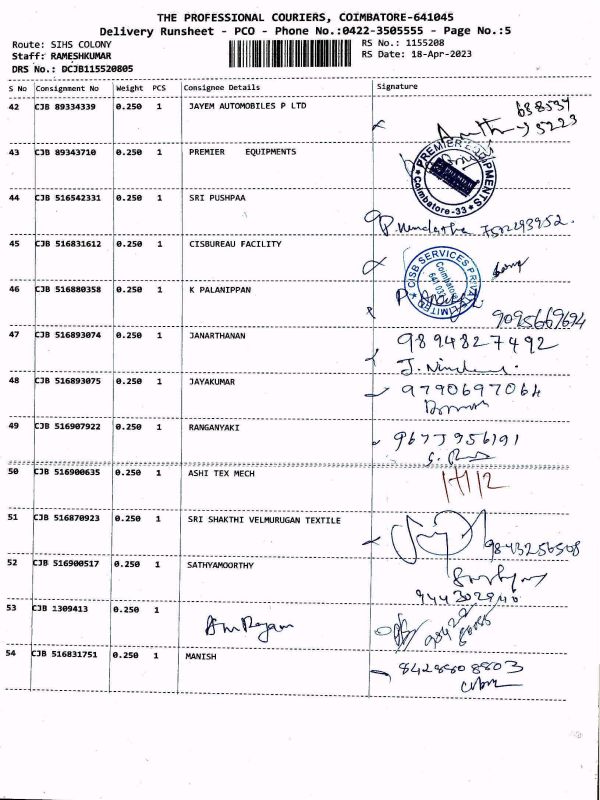 THE PROFESSIONAL COURIERS, COIMBATORE-641045
Delivery Runsheet - PCO - Phone No.:0422-3505555 - Page No.:5
Route: SIHS COLONY
RS No.: 1155208
Staff: RAMESHKUMAR
RS Date: 18-Apr-2023
DRS No.: DCJB115520805
S No Consignment No Weight PCS Consignee Details Signature
42 CJB 89334339 0.250 1 JAYEM AUTOMOBILES P LTD
638534
73223
43 CJB 89343710 0.250 1 PREMIER EQUIPMENTS
PREMIER EQUIPMENTS
Coimbatore-33
44 CJB 516542331 0.250 1 SRI PUSHPAA
45 CJB 516831612 0.250 1 CISBUREAU FACILITY
CISB SERVICES PRIVATE LIMITED
Coimbatore
46 CJB 516880358 0.250 1 K PALANIPPAN
9095669694
47 CJB 516893074 0.250 1 JANARTHANAN
9894827492
48 CJB 516893075 0.250 1 JAYAKUMAR
9790697064
49 CJB 516907922 0.250 1 RANGANYAKI
9677956191
50 CJB 516900635 0.250 1 ASHI TEX MECH
51 CJB 516870923 0.250 1 SRI SHAKTHI VELMURUGAN TEXTILE
9843256508
52 CJB 516900517 0.250 1 SATHYAMOORTHY
944302946
53 CJB 1309413 0.250 1
54 CJB 516831751 0.250 1 MANISH
8428808803